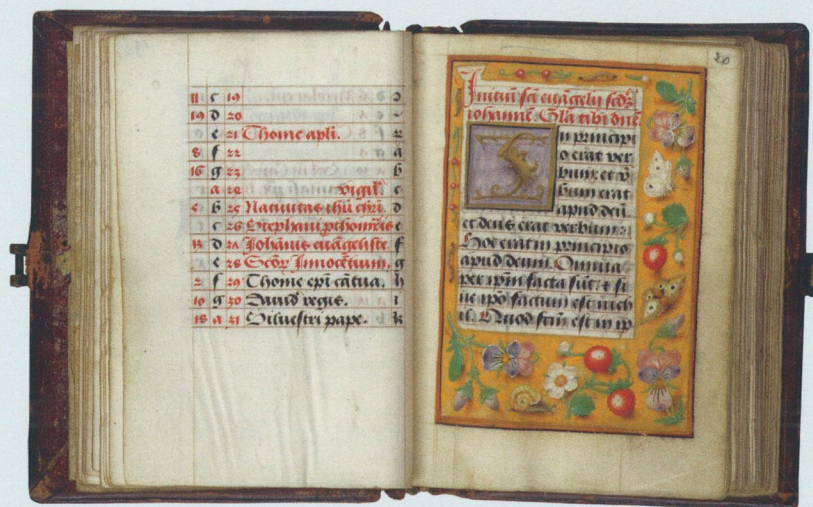 11 c 19
19 d 20
e 21 Thome apli.
8 f 22
16 g 23
a 24 vigil'
5 b 25 Natiuitas ihu chri. d
c 26 Stephani e
13 d 27 Johanis euageliste. f
e 28 Scor Innocetium. g
2 f 29 Thome epi catua. h
10 g 30 Dauid regis. i
18 a 31 Siluestri pape. k
20
Initiu sci euagelij scds
iohanne. Gla tibi dne.
In principi
o erat ver
bum: et v
bum erat
apud deu
et deus erat verbum:
Hoc erat in principio
apud deum. Omnia
per ipm facta sut: & si
ne ipo factum est nich
il. Quod fctm est in ip